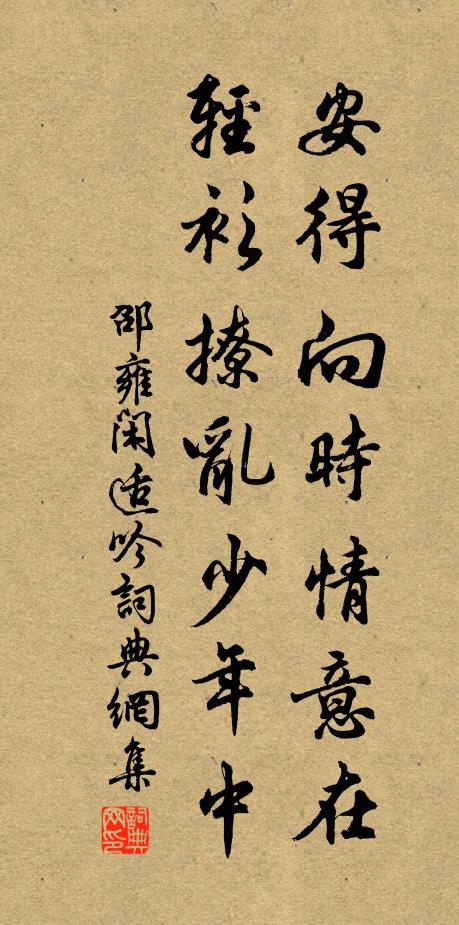 安得向時情意在
輕衫撩亂少年中
邵雍閑適吟詞典網集
詞典網印